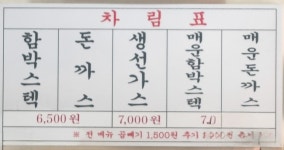 차림표
함박스텍
돈까스
생선가스
매운함박스텍
매운돈까스
6,500원
7,000원
※ 전 메뉴 곱빼기 1,500원 추가